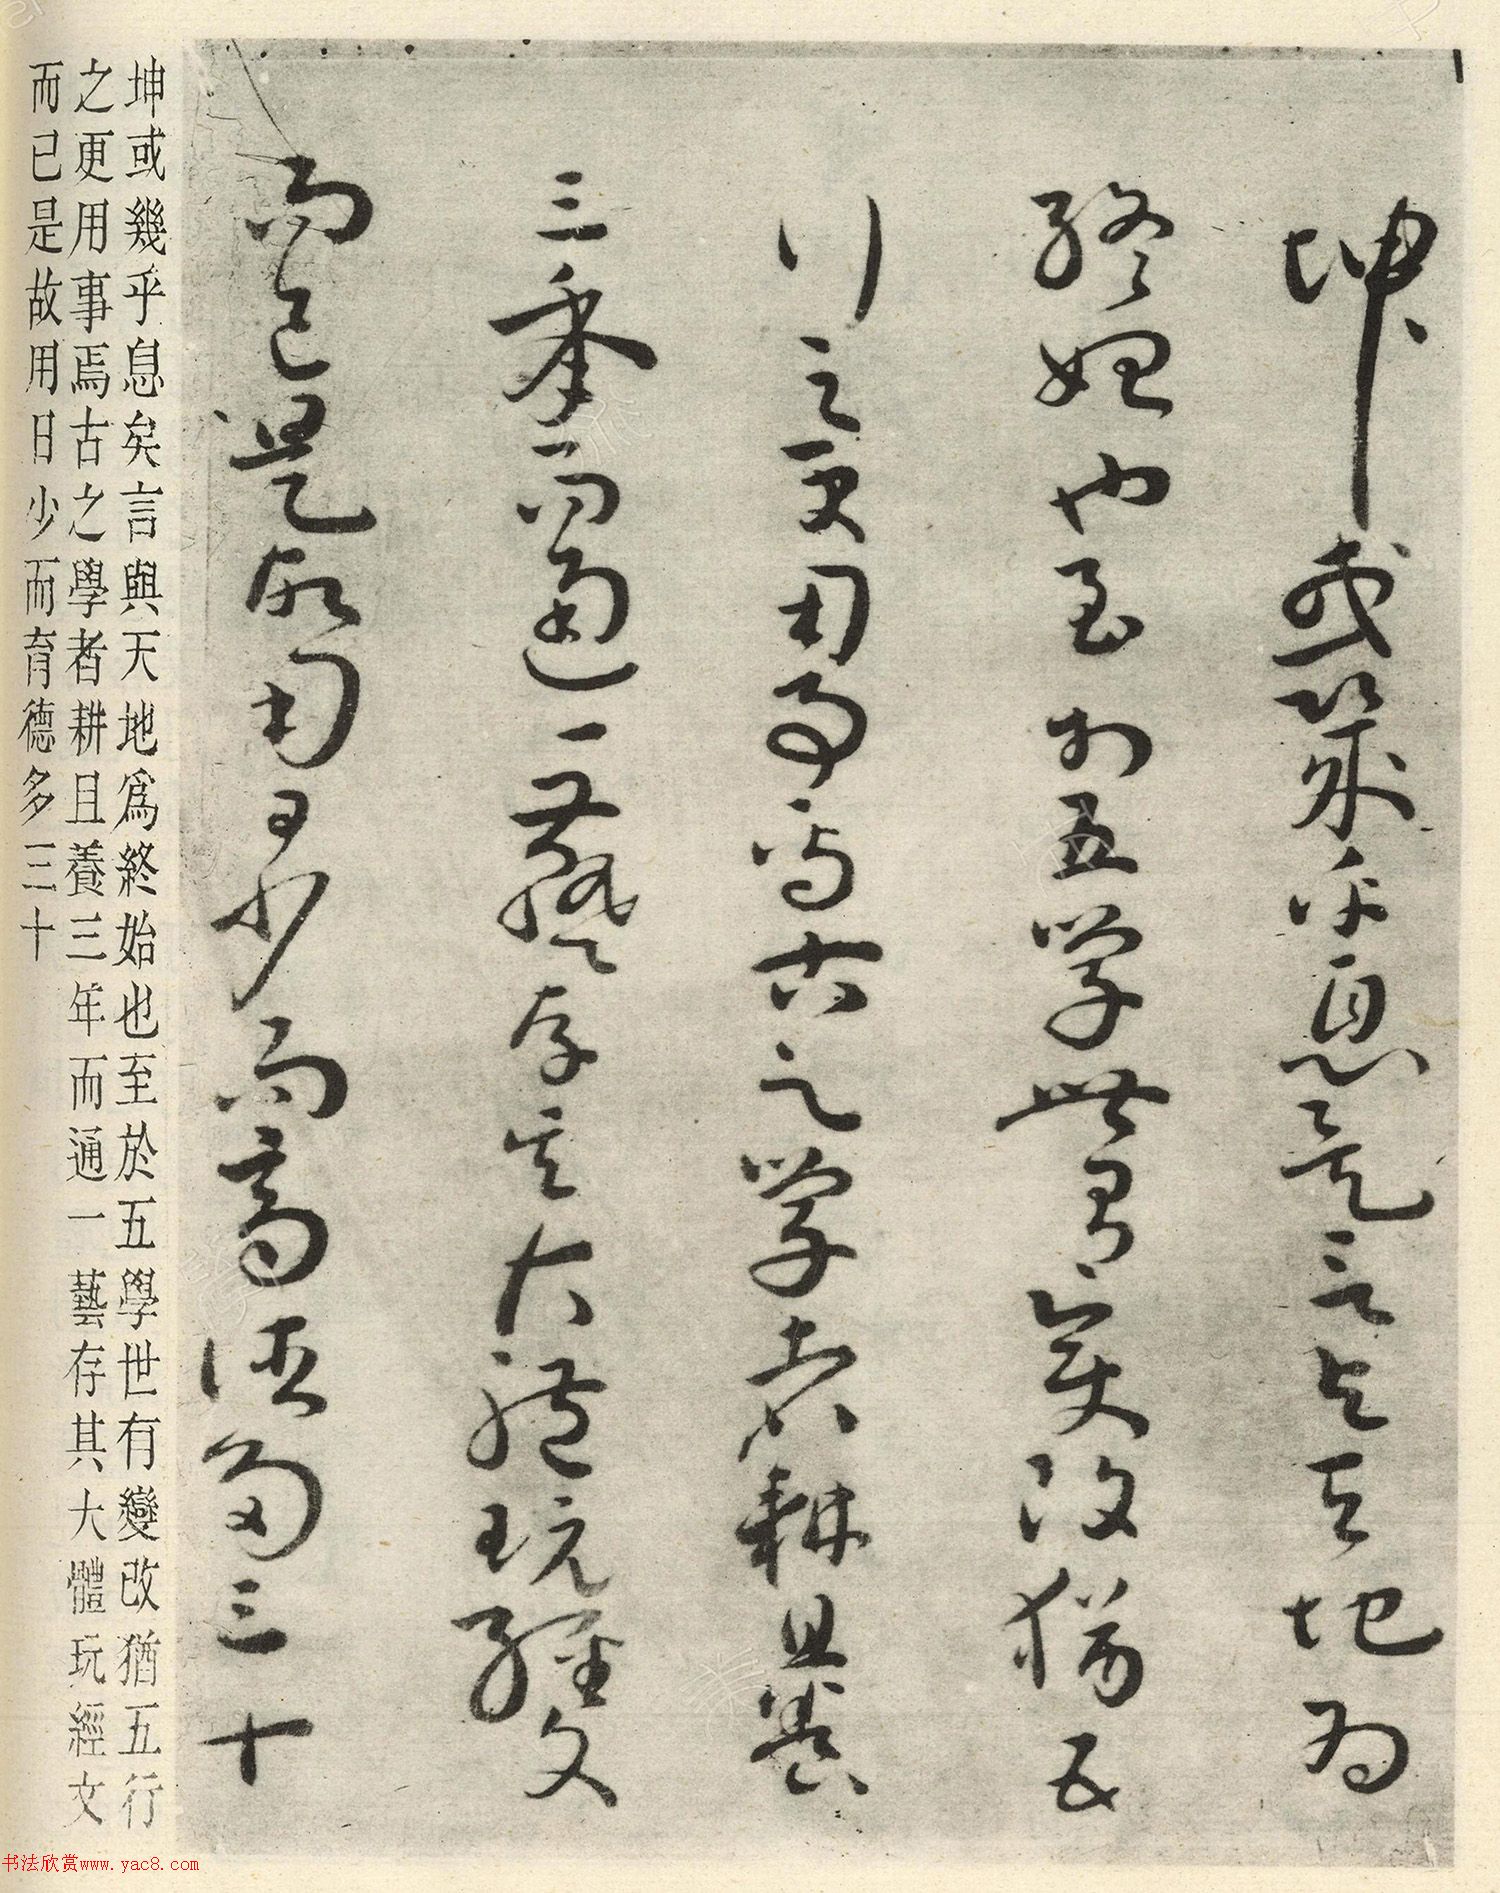 坤或幾乎息矣言與天地為
終始也至於五學世有變改猶五
行之更用事焉古之學者耕且養
三年而通一藝存其大體玩經文
而已是故用日少而畜德多三十
坤或幾乎息矣言與天地爲終始也至於五學世有變改猶五行
之更用事焉古之學者耕且養三年而通一藝存其大體玩經文
而已是故用日少而育德多三十
书法欣赏www.yac8.com